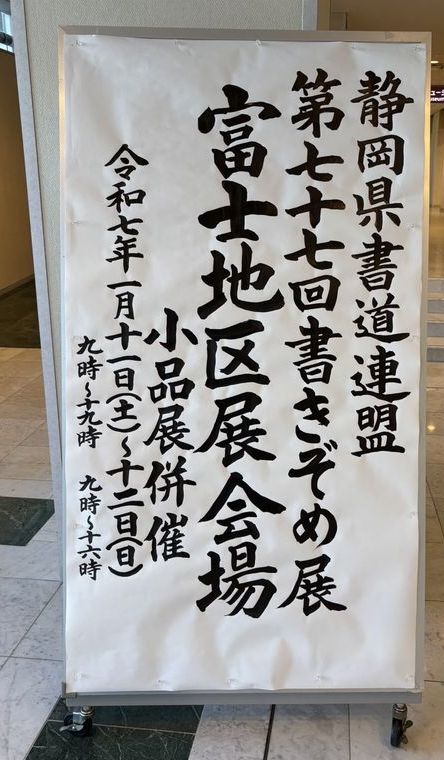 静岡県書道連盟
第七十七回書きぞめ展
富士地区展会場
小品展併催
令和七年一月十一日(土)~十二日(日)
九時~十九時 九時~十六時